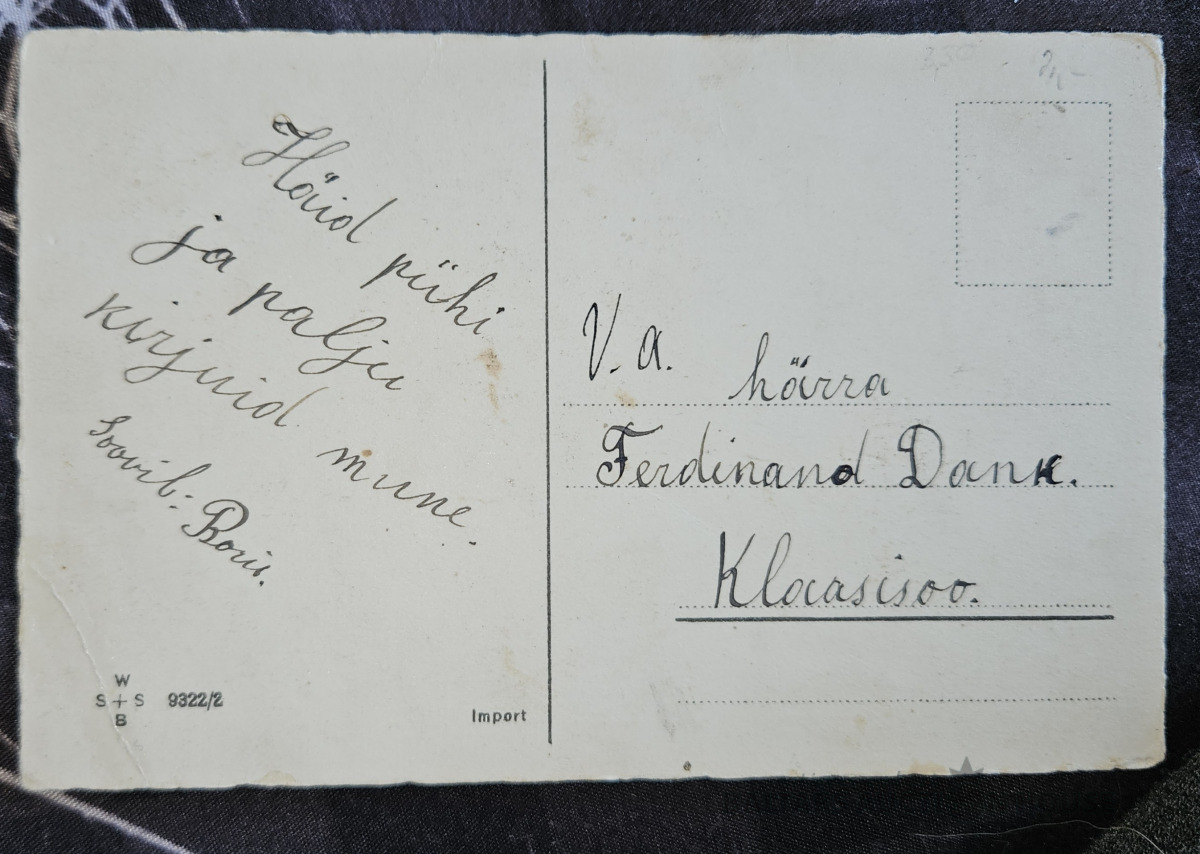 Häid pühi
ja palju
kirjuid mune.
Soovib: Boris.
W
S + S 9322/2
B
Import
V. a. härra
Ferdinand Dank.
Klaasisoo.